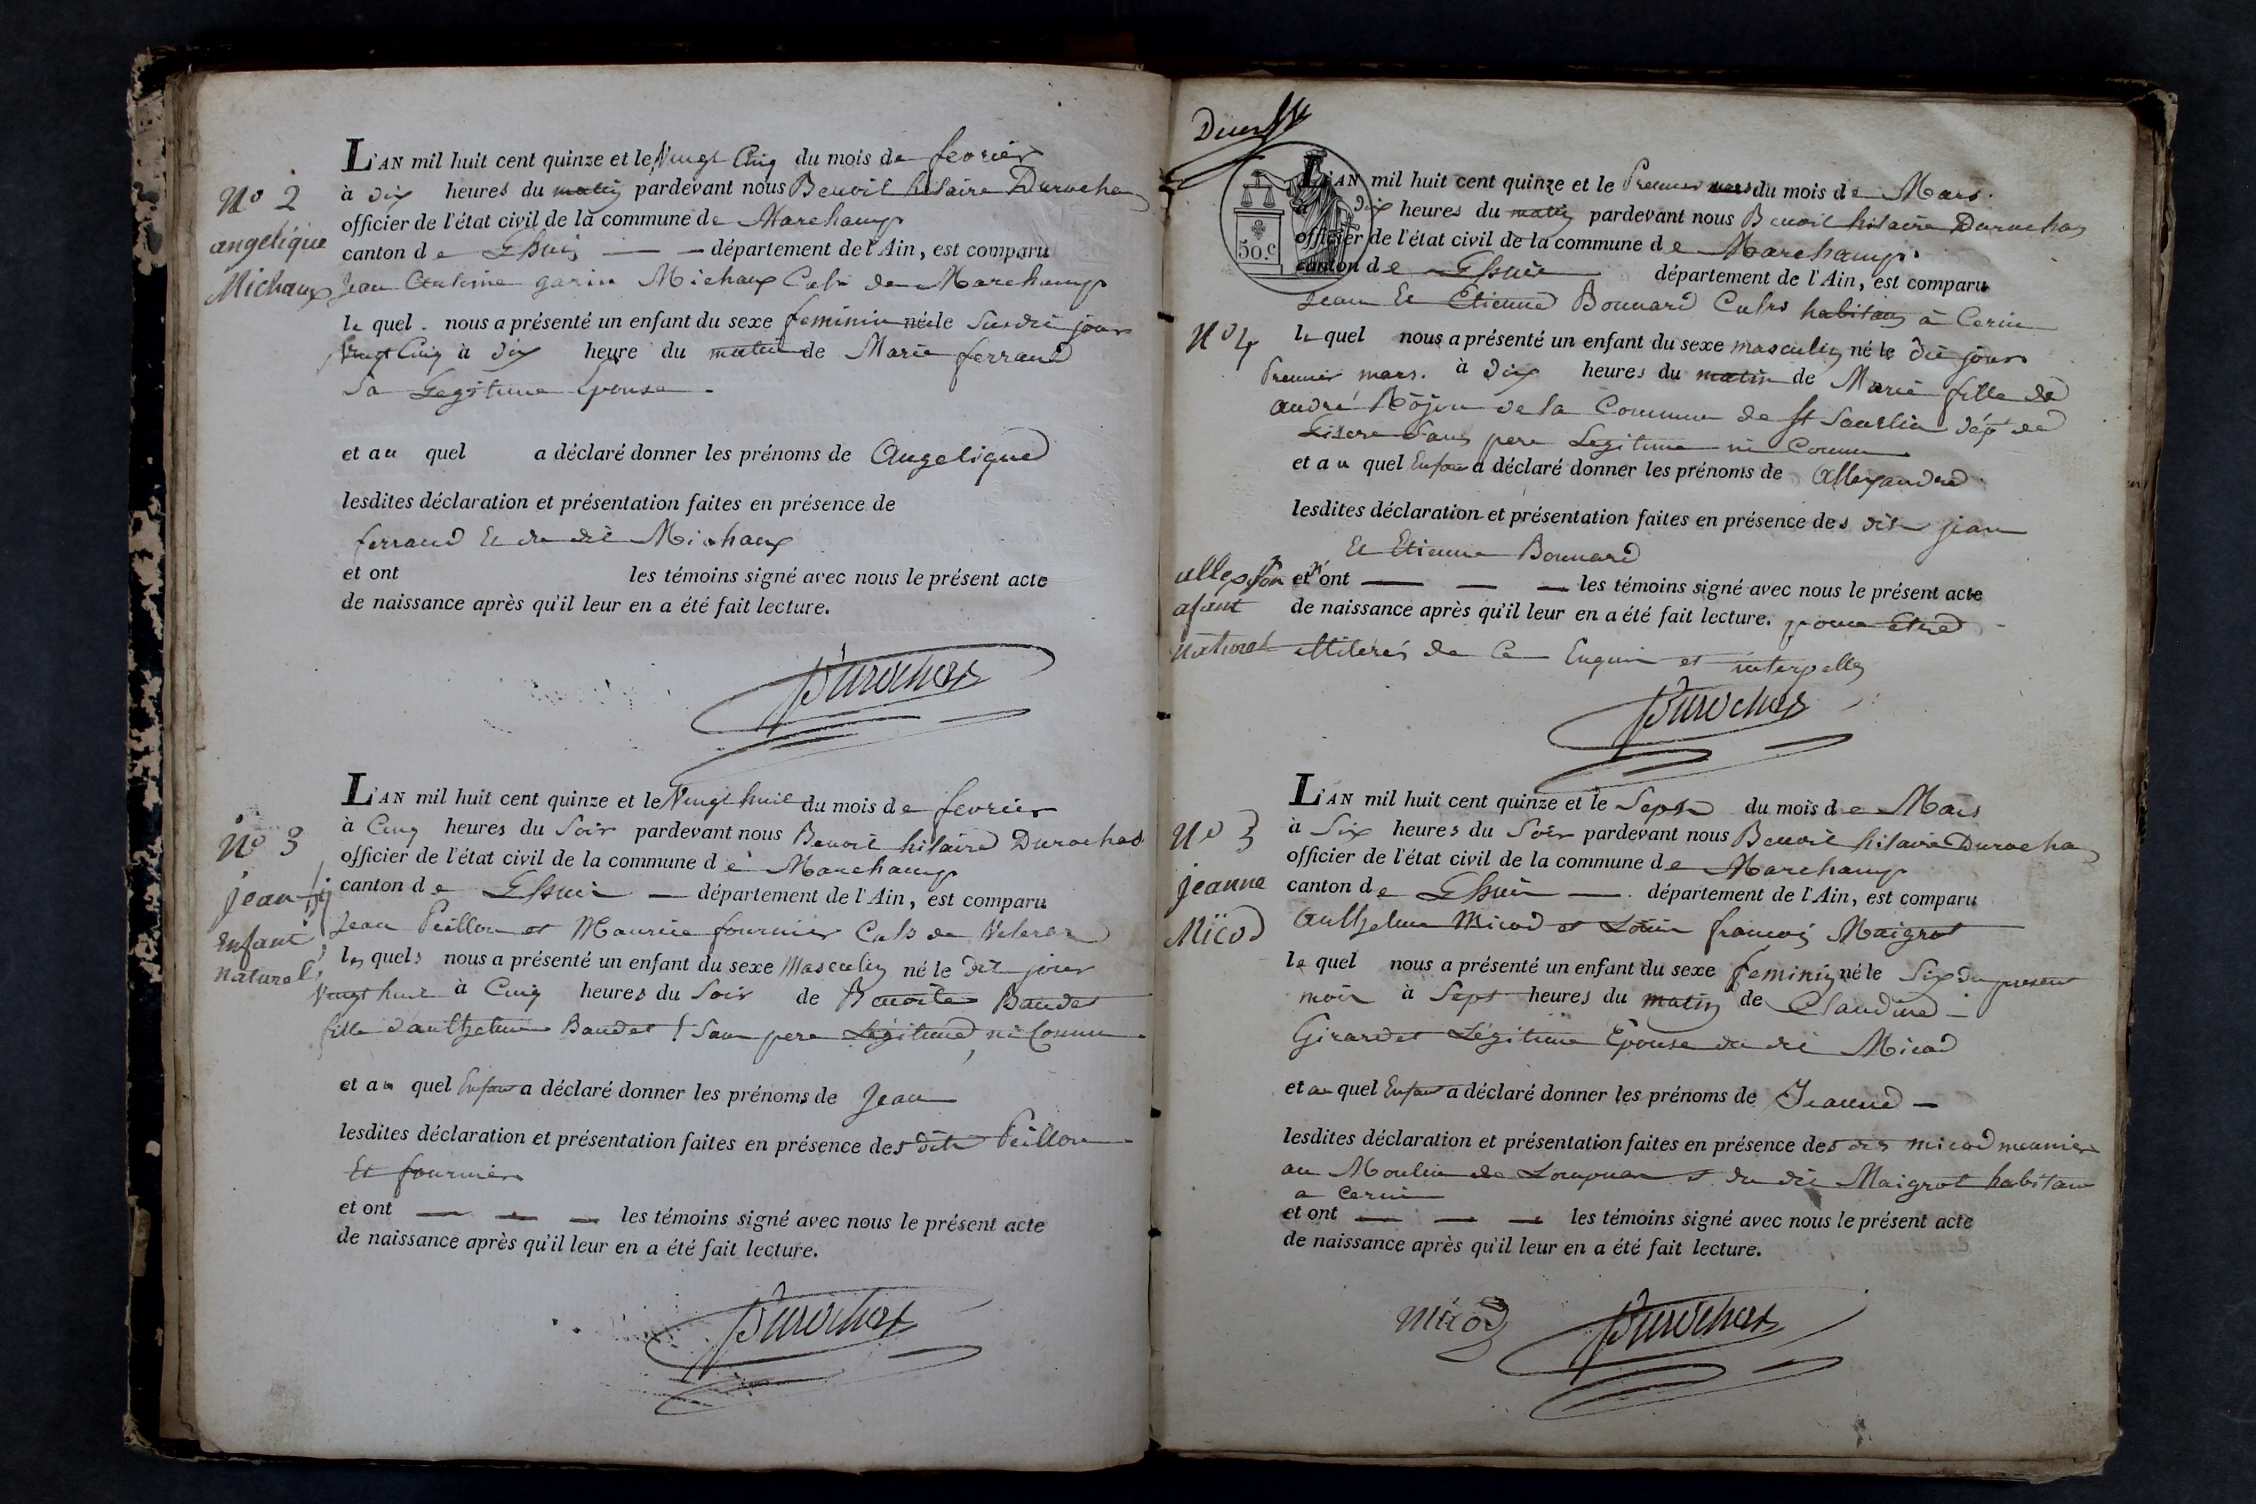 No 2
angelique
Michaux
L'AN mil huit cent quinze et le Vingt Cinq du mois de fevrier
à dix heures du matin pardevant nous Benoit hilaire Durochas
officier de l'état civil de la commune de Marchamp
canton de Lhuis département de l'Ain, est comparu
Jean Antoine garin Michaux Culr de Marchamp
le quel nous a présenté un enfant du sexe feminin né le Susdit jour
Vingt Cinq à dix heure du matin de Marie ferrand
Sa Legitime Epouse
et au quel a déclaré donner les prénoms de Angelique
lesdites déclaration et présentation faites en présence de
ferrand et du dit Michaux
et ont les témoins signé avec nous le présent acte
de naissance après qu'il leur en a été fait lecture.
Durochas
No 3
jean
enfant
naturel
L'AN mil huit cent quinze et le Vingt huit du mois de fevrier
à Cinq heures du Soir pardevant nous Benoit hilaire Durochas
officier de l'état civil de la commune de Marchamp
canton de Lhuis département de l'Ain, est comparu
Jean Peillon et Maurice fournier Culs de
les quels nous a présenté un enfant du sexe Masculin né le dit jour
Vingt huit à Cinq heures du Soir de Benoite Baudet
fille d'anthelme Baudet Sans pere Légitime ni Connu
et au quel Enfant a déclaré donner les prénoms de Jean
lesdites déclaration et présentation faites en présence des dits Peillon
Et fournier
et ont les témoins signé avec nous le présent acte
de naissance après qu'il leur en a été fait lecture.
Durochas
50.c
L'AN mil huit cent quinze et le Premier mars du mois de Mars
à dix heures du matin pardevant nous Benoit hilaire Durochas
officier de l'état civil de la commune de Marchamp
canton de Lhuis département de l'Ain, est comparu
Jean Et Etienne Bonnard Culrs habitans à Cerin
No 4
le quel nous a présenté un enfant du sexe masculin né le dit jour
Premier mars. à dix heures du matin de Marie fille de
andré Rojon de la Commune de St Saurlin dépt de
Lisere Sans pere Legitime ni Connu
et au quel Enfant a déclaré donner les prénoms de allexandre
lesdites déclaration et présentation faites en présence des dits jean
Et Etienne Bonnard
afant
naturel
et n'ont les témoins signé avec nous le présent acte
de naissance après qu'il leur en a été fait lecture. pour etre
illiterés de Ce Enquis et interpellés
Durochas
No 5
jeanne
Micod
L'AN mil huit cent quinze et le Sept du mois de Mars
à Six heures du Soir pardevant nous Benoit hilaire Durochas
officier de l'état civil de la commune de Marchamp
canton de Lhuis département de l'Ain, est comparu
anthelme Micod et Louis francois Maigrot
le quel nous a présenté un enfant du sexe feminin né le Six du present
mois à Sept heures du matin de Claudine
Girardet Légitime Epouse du dit Micod
et au quel Enfant a déclaré donner les prénoms de Jeanne
lesdites déclaration et présentation faites en présence des dit micod meunier
au Moulin de et du dit Maigrot habitant
a Cerin
et ont les témoins signé avec nous le présent acte
de naissance après qu'il leur en a été fait lecture.
Micod Durochas